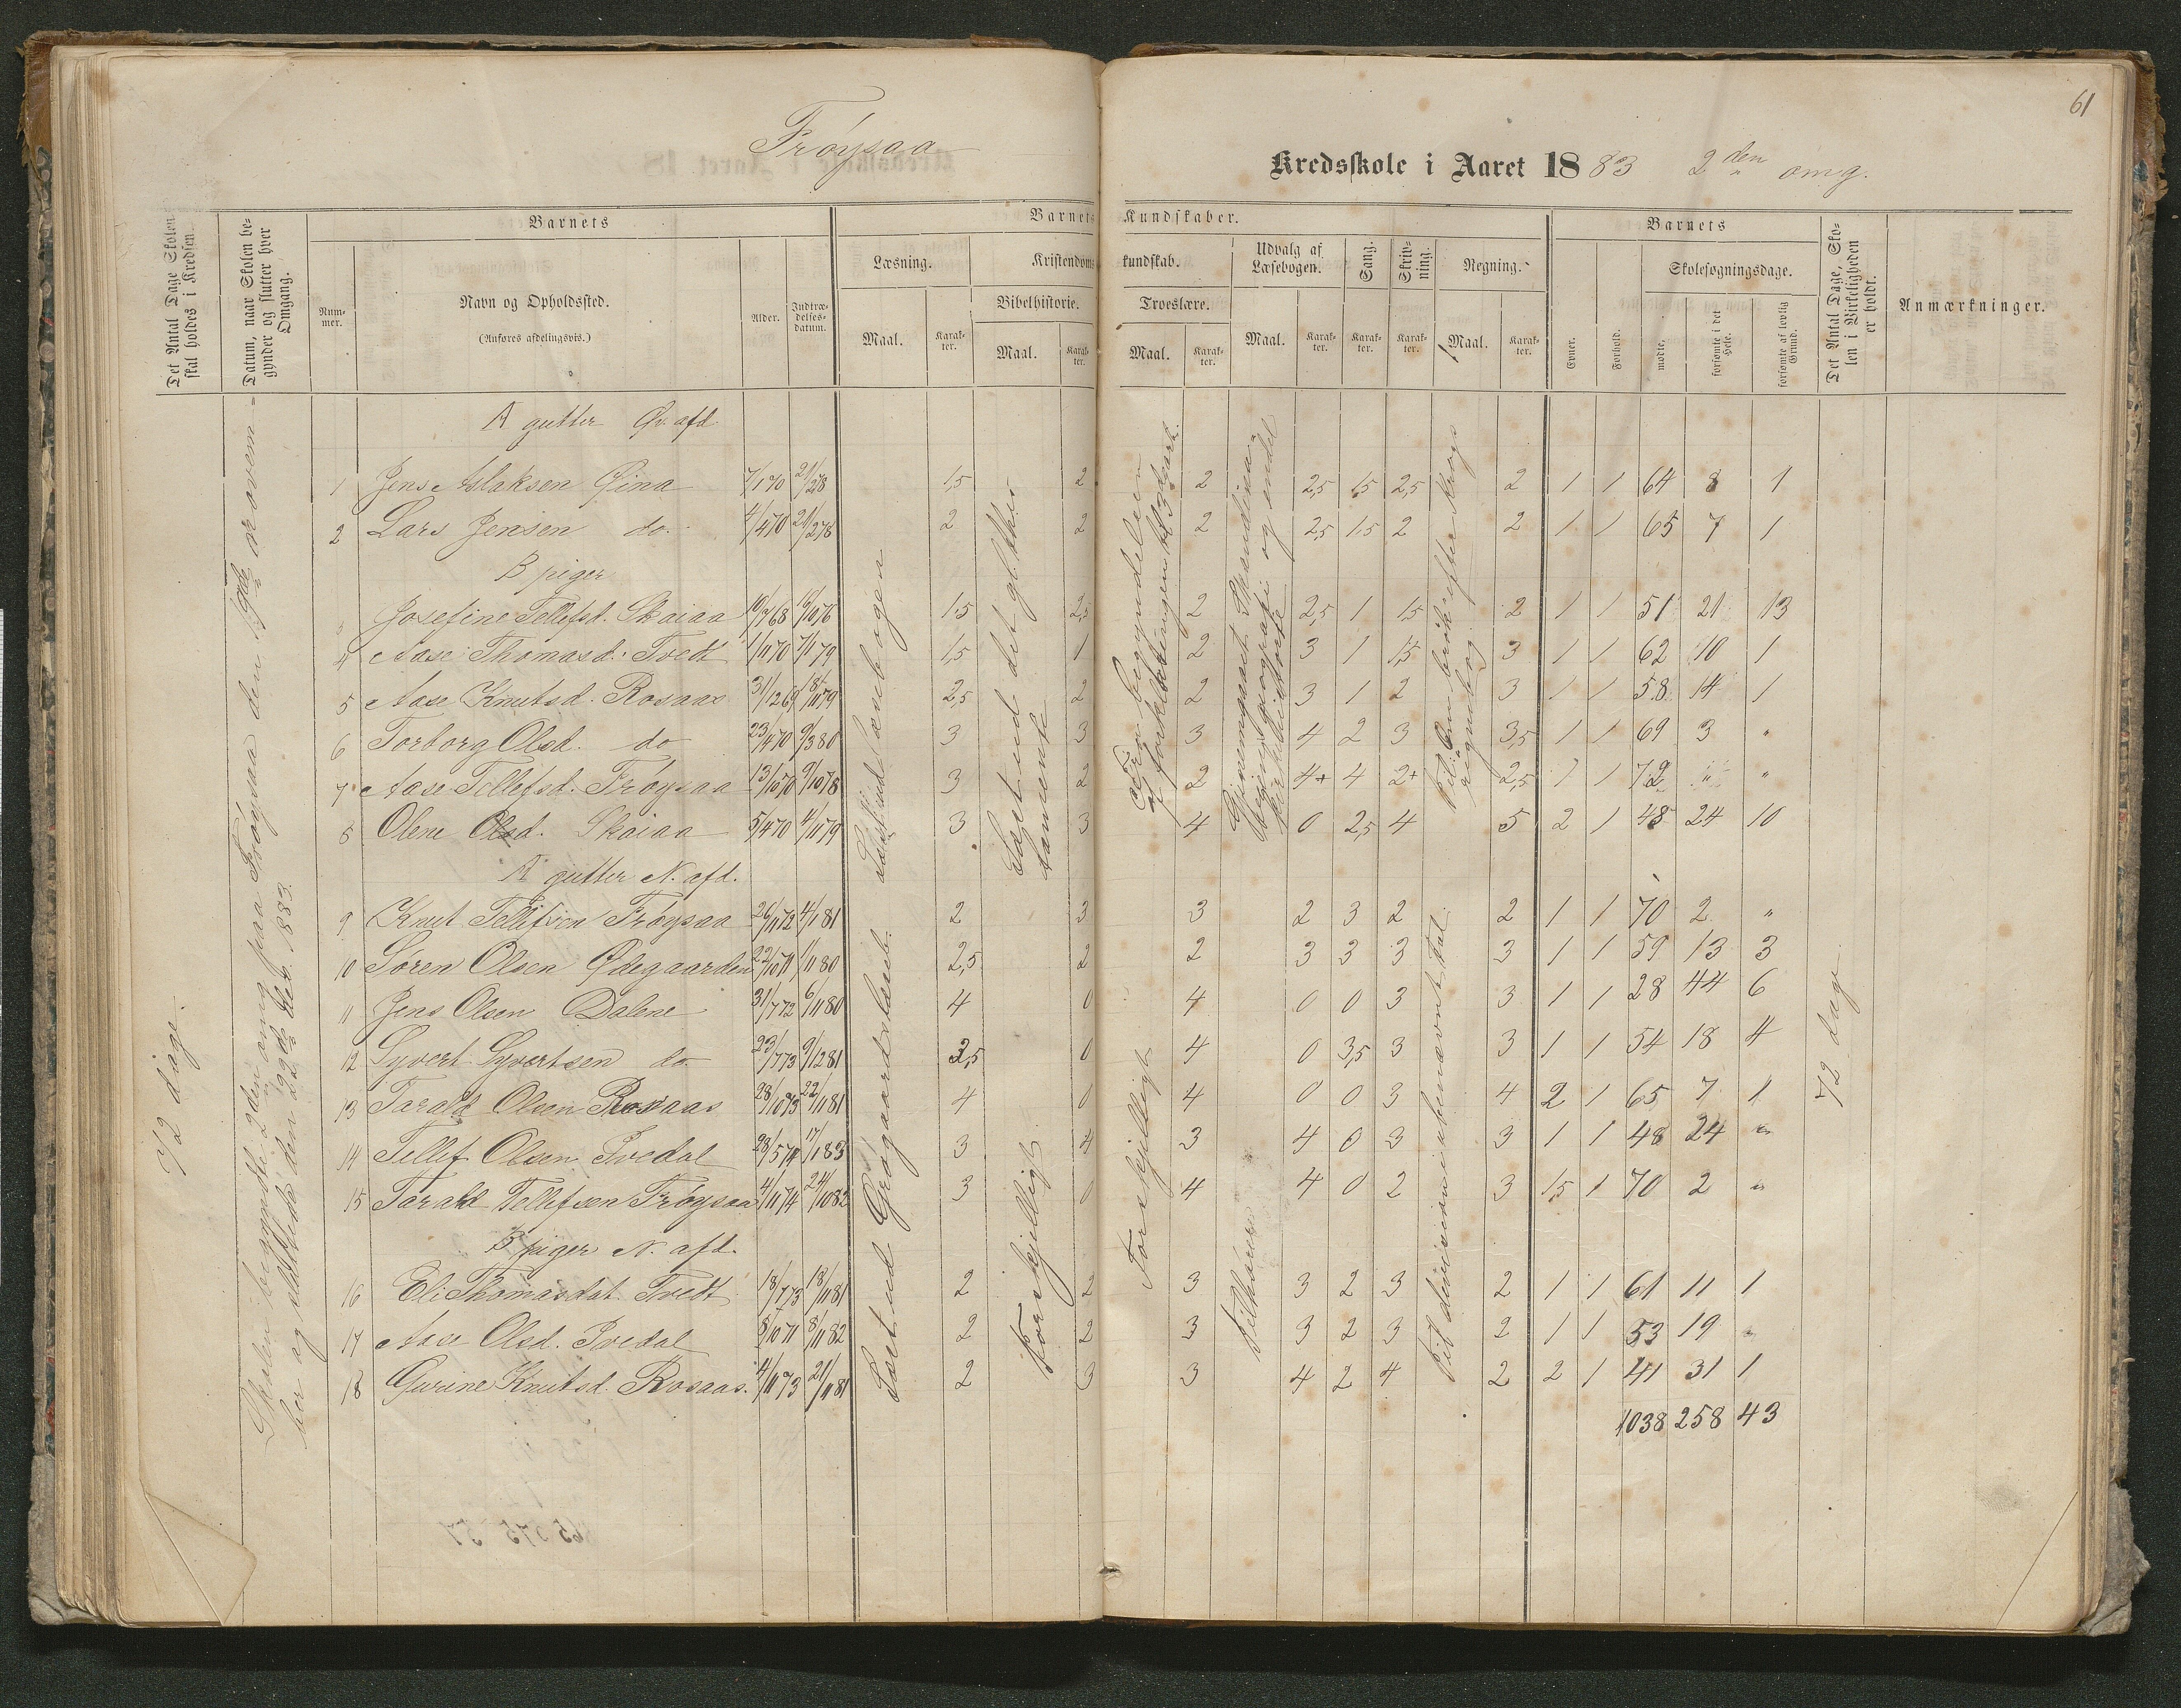 61
Frøysaa
Kredsskole i Aaret 1883 2den omg.
Det Antal Dage Skolen skal holdes i Kredsen.
Datum, naar Skolen begynder og slutter hver Omgang.
Barnets
Nummer.
Navn og Opholdssted.
(Anføres afdelingsvis.)
Alder.
Indtrædelsesdatum.
Barnets Kundskaber.
Læsning.
Maal.
Karakter.
Kristendomskundskab.
Bibelhistorie.
Maal.
Karakter.
Troeslære.
Maal.
Karakter.
Udvalg af Læsebogen.
Maal.
Karakter.
Sang.
Karakter.
Skrivning.
Karakter.
Regning.
Maal.
Karakter.
Barnets
Evner.
Forhold.
Skolesøgningsdage.
mødte.
forsømte i det Hele.
forsømte af lovlig Grund.
Det Antal Dage, Skolen i Virkeligheden er holdt.
Anmærkninger.
72 dage.
Skolen begyndte 2den omg paa Frøysaa den novem-
ber og sluttede den 22de deb. 1883.
Forskjelligt
Forskjelligt
72 dage
A gutter Øv. afd
1 Jens Aslaksen Øina 7/1 70 21/2 78 1,5 2 2 2,5 1,5 2,5 2 1 1 64 8 1
2 Lars Jensen do. 4/4 70 21/2 78 2 2 2 2,5 1,5 2 2 1 1 65 7 1
B piger
Josefine Tellefsd. Skaiaa 1,5 2,5 2 2,5 1 1,5 2 1 1 51 21 13
4 Aase Thomasd. Tvedt 1/11 70 7/11 79 1,5 1 2 3 1 1,5 3 1 1 62 10 1
5 Aase Knutsd. Rosaas 31/12 69 18/11 79 2,5 2 2 3 1 2 3 1 1 58 14 1
6 Torborg Olsd. do 23/4 70 9/3 80 3 3 3 4 2 3 3,5 1 1 69 3 "
7 Aase Tellefsd. Frøysaa 13/10 70 9/10 78 3 2 2 4+ 4 2+ 2,5 1 1 72 " "
8 Olene Olsd. Skaiaa 5/4 70 4/11 79 3 3 4 0 2,5 4 5 2 1 48 24 10
A gutter N. afd.
9 Knut Tellefsen Frøysaa 26/11 72 4/1 81 2 3 3 2 3 2 2 1 1 70 2 "
10 Søren Olsen Ødegaarden 22/10 71 1/11 80 2,5 2 2 3 3 3 3 1 1 59 13 3
11 Jens Olsen Dalene 31/7 72 6/11 80 4 0 4 0 0 3 3 1 1 28 44 6
12 Syvert Syvertsen do. 23/7 73 9/12 81 2,5 0 4 0 3,5 3 3 1 1 54 18 4
13 Tarald Olsen Rosaas 28/10 73 22/11 81 4 0 4 0 0 3 4 2 1 65 7 1
14 Tellef Olsen Ivedal 28/5 74 17/1 83 3 4 3 4 0 3 3 1 1 48 24 "
15 Tarald Tellefsen Frøysaa 4/11 74 24/10 82 3 0 4 4 0 2 3 1,5 1 70 2 "
B piger N. afd.
16 Eli Thomasdat. Tvedt 18/7 73 18/11 81 2 2 3 3 2 3 2 1 1 61 11 1
17 Aase Olsd. Ivedal 8/10 71 8/11 82 2 2 3 3 2 3 2 1 1 53 19 "
18 Gurine Knutsd. Rosaas. 4/11 73 21/11 81 2 3 3 4 2 4 2 2 1 41 31 1
1038 258 43